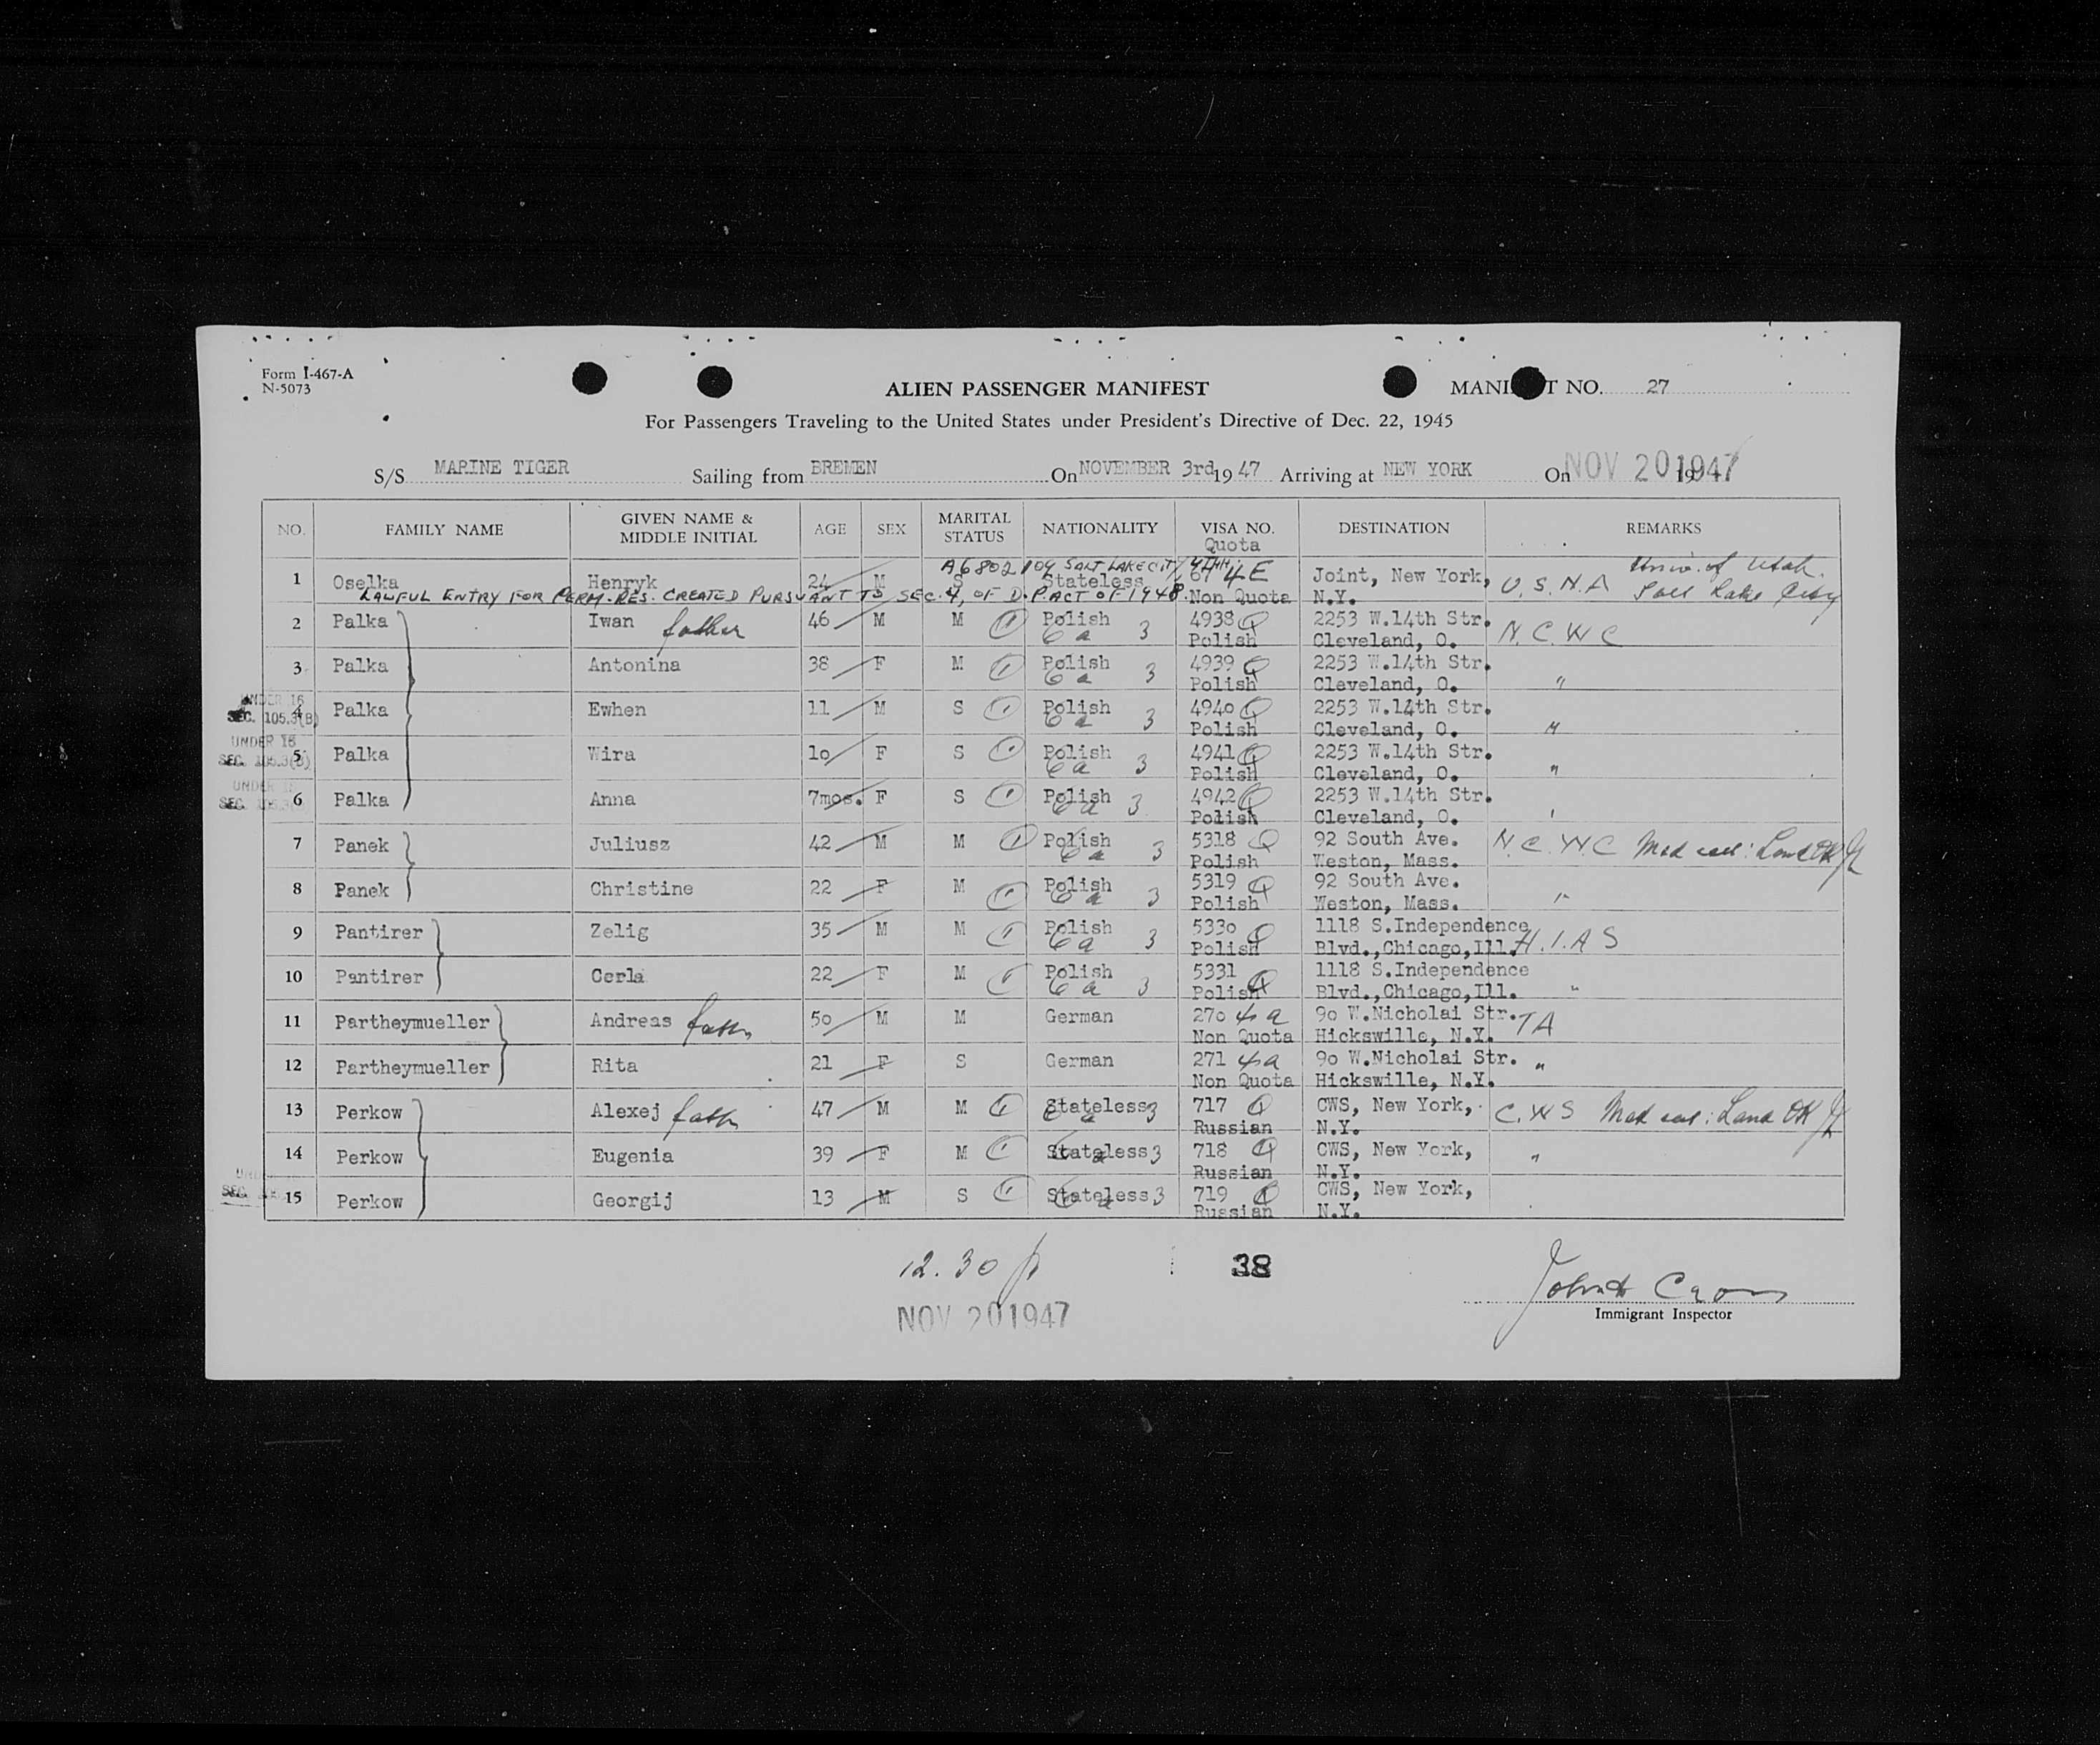 Form I-467-A
N-5073
ALIEN PASSENGER MANIFEST
MANI T NO. 27
For Passengers Traveling to the United States under President's Directive of Dec. 22, 1945
S/S MARINE TIGER Sailing from BREMEN On NOVEMBER 3rd 19 47 Arriving at NEW YORK On NOV 20 1947
NO. FAMILY NAME GIVEN NAME & MIDDLE INITIAL AGE SEX MARITAL STATUS NATIONALITY VISA NO. Quota DESTINATION REMARKS
A6802104 SALT LAKE CITY, UTAH; Univ. of Utah.
1 Oselka Henryk 24 M S Stateless 67 4E Joint, New York, U.S.N.A Salt Lake City
LAWFUL ENTRY FOR PERM. RES. CREATED PURSUANT TO SEC. 4, OF D.P. ACT OF 1948. Non Quota N.Y.
2 Palka Iwan father 46 M M Polish 3 4938 Q 2253 W.14th Str.
6a Polish Cleveland, O. N.C.W.C
3 Palka Antonina 38 F M Polish 3 4939 Q 2253 W.14th Str.
6a Polish Cleveland, O. "
UNDER 16
4 Palka Ewhen 11 M S Polish 3 4940 Q 2253 W.14th Str.
SEC. 105.3(B) 6a Polish Cleveland, O. "
UNDER 16
5 Palka Wira 10 F S Polish 3 4941 Q 2253 W.14th Str.
SEC. 105.3(B) 6a Polish Cleveland, O. "
6 Palka Anna 7mos. F S Polish 3 4942 Q 2253 W.14th Str.
SEC. 6a Polish Cleveland, O.
7 Panek Juliusz 42 M M Polish 3 5318 Q 92 South Ave. N.C.W.C
6a Polish Weston, Mass.
8 Panek Christine 22 F M Polish 3 5319 Q 92 South Ave.
6a Polish Weston, Mass. "
9 Pantirer Zelig 35 M M Polish 3 5330 Q 1118 S.Independence
6a Polish Blvd.,Chicago,Ill. H.I.A S
10 Pantirer Cerla 22 F M Polish 3 5331 Q 1118 S.Independence
6a Polish Blvd.,Chicago,Ill. "
11 Partheymueller Andreas 50 M M German 270 4a 90 W.Nicholai Str. TA
Non Quota Hickswille, N.Y.
12 Partheymueller Rita 21 F S German 271 4a 90 W.Nicholai Str. "
Non Quota Hickswille, N.Y.
13 Perkow Alexej 47 M M Stateless 3 717 Q CWS, New York, C.W.S
6a Russian N.Y.
14 Perkow Eugenia 39 F M Stateless 3 718 Q CWS, New York, "
6a Russian N.Y.
15 Perkow Georgij 13 M S Stateless 3 719 Q CWS, New York,
SEC. 6a Russian N.Y.
12.30 p
38
NOV 20 1947
Immigrant Inspector